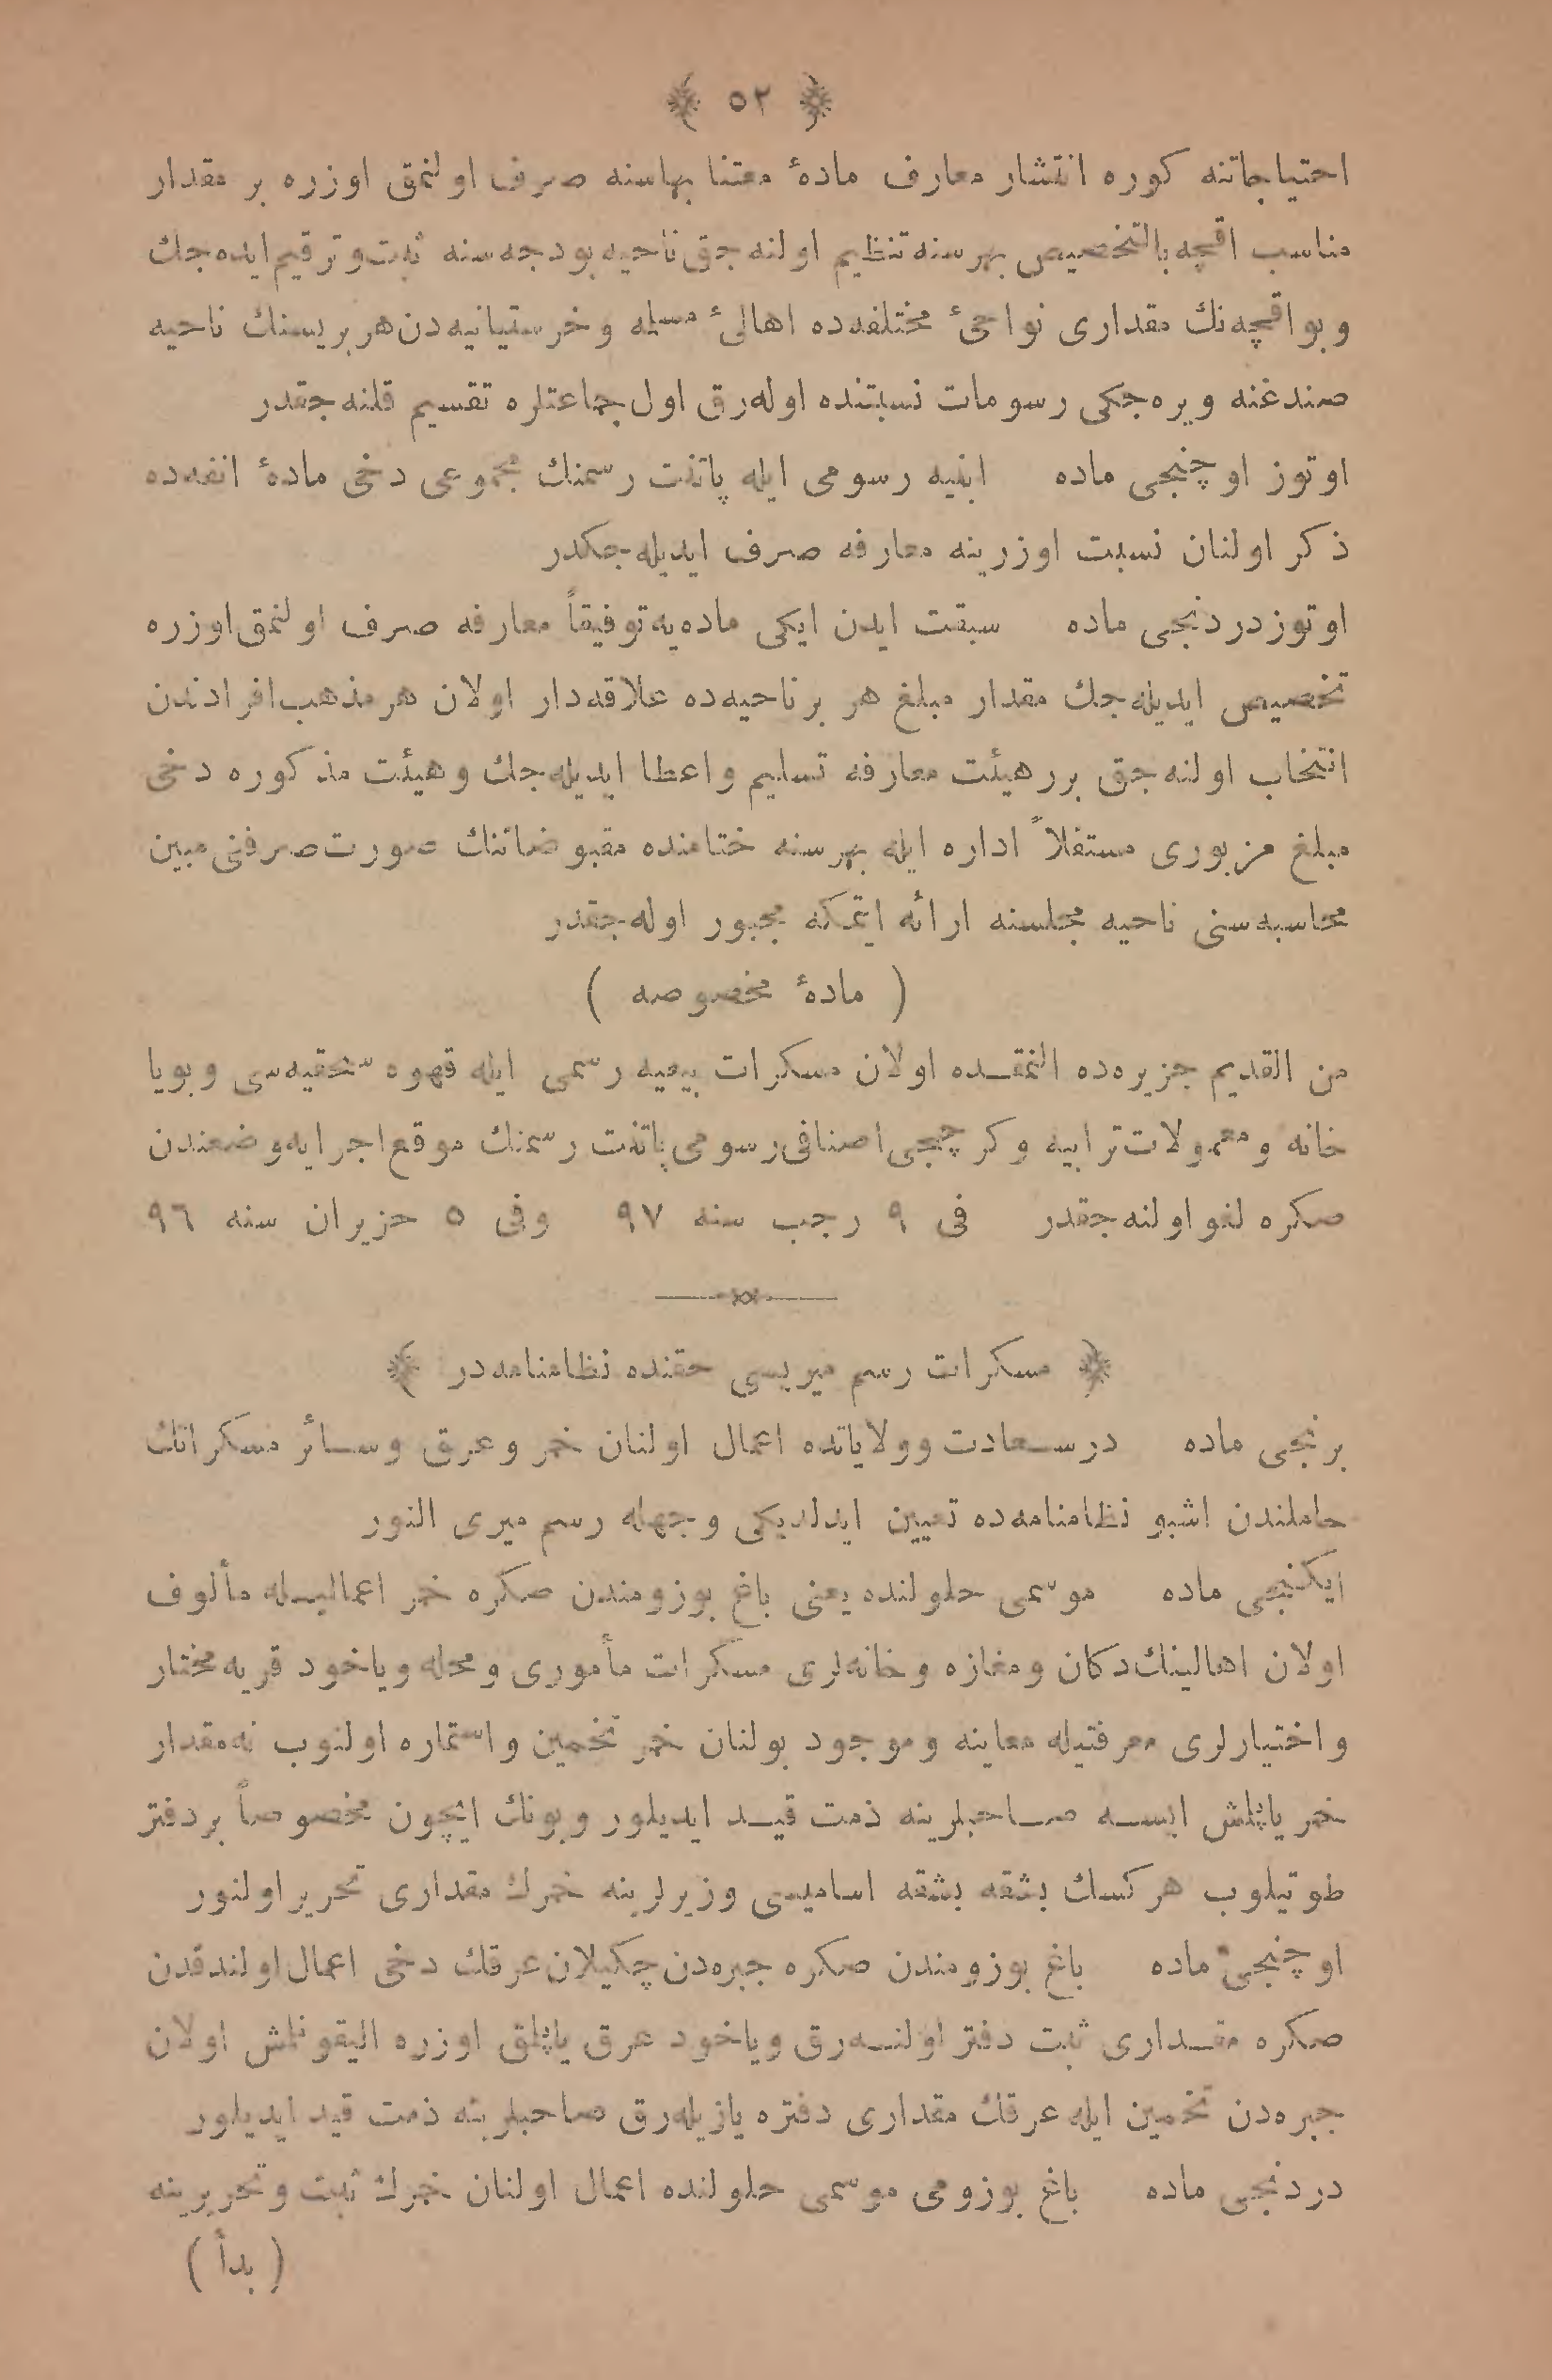 ﴿ ٥٢ ﴾
احتياجاتنه كوره انتشار معارف مادهٔ معتنا بهاسنه صرف اولنمق اوزره بر مقدار
مناسب اقچه بالتخصيص بهر سنه تنظيم اولنه جق ناحيه بودجه سنه ثبت و ترقيم ايده جك
و بو اقچه نك مقداری نواحیٔ مختلفه ده اهالیٔ مسلمه و خرستيانيه دن هر بريسنك ناحيه
صندغنه ويره جكی رسومات نسبتنده اوله رق اول جماعتلره تقسيم قلنه جقدر
اوتوز اوچنجی ماده ابنيه رسومی ايله پاتنت رسمنك مجموعی دخی مادهٔ انفه ده
ذكر اولنان نسبت اوزرينه معارفه صرف ايديله جكدر
اوتوز دردنجی ماده سبقت ايدن ايكی ماده يه توفيقاً معارفه صرف اولنمق اوزره
تخصيص ايديله جك مقدار مبلغ هر بر ناحيه ده علاقه دار اولان هر مذهب افرادندن
انتخاب اولنه جق برر هيئت معارفه تسليم و اعطا ايديله جك و هيئت مذكوره دخی
مبلغ مزبوری مستقلاً اداره ايله بهر سنه ختامنده مقبوضاتنك صورت صرفنی مبين
محاسبه سنی ناحيه مجلسنه ارائه ايتمكه مجبور اوله جقدر
( مادهٔ مخصوصه )
من القديم جزيره ده النمقــده اولان مسكرات بيعيه رسمی ايله قهوه سحقيه سی و بويا
خانه و معمولات ترابيه و كرچجی اصنافی رسومی پاتنت رسمنك موقع اجرايه وضعندن
صكره لغو اولنه جقدر فی ٩ رجب سنه ٩٧ وفی ٥ حزيران سنه ٩٦
﴿ مسكرات رسم ميريسی حقنده نظامنامه در ﴾
برنجی ماده درســعادت و ولاياتده اعمال اولنان خمر و عرق و ســائر مسكراتك
حاملندن اشبو نظامنامه ده تعيين ايدلديكی وجهله رسم ميری النور
ايكنجی ماده موسمی حلولنده يعنی باغ بوزومندن صكره خمر اعماليــله مألوف
اولان اهالينك دكان و مغازه و خانه لری مسكرات مأموری و محله وياخود قريه مختار
و اختيارلری معرفتيله معاينه و موجود بولنان خمر تخمين و استماره اولنوب نه مقدار
خمر ياپلمش ايســه صــاحبلرينه ذمت قيــد ايديلور و بونك ايچون مخصوصاً بر دفتر
طوتيلوب هر كسك بشقه بشقه اساميسی و زيرلرينه خمرك مقداری تحرير اولنور
اوچنجی ماده باغ بوزومندن صكره جبره دن چكيلان عرقك دخی اعمال اولندقدن
صكره مقــداری ثبت دفتر اولنــه رق وياخود عرق ياپلمق اوزره اليقونلمش اولان
جبره دن تخمين ايله عرقك مقداری دفتره يازيله رق صاحبلرينه ذمت قيد ايديلور
دردنجی ماده باغ بوزومی موسمی حلولنده اعمال اولنان خمرك ثبت و تحريرينه
( بدأ )